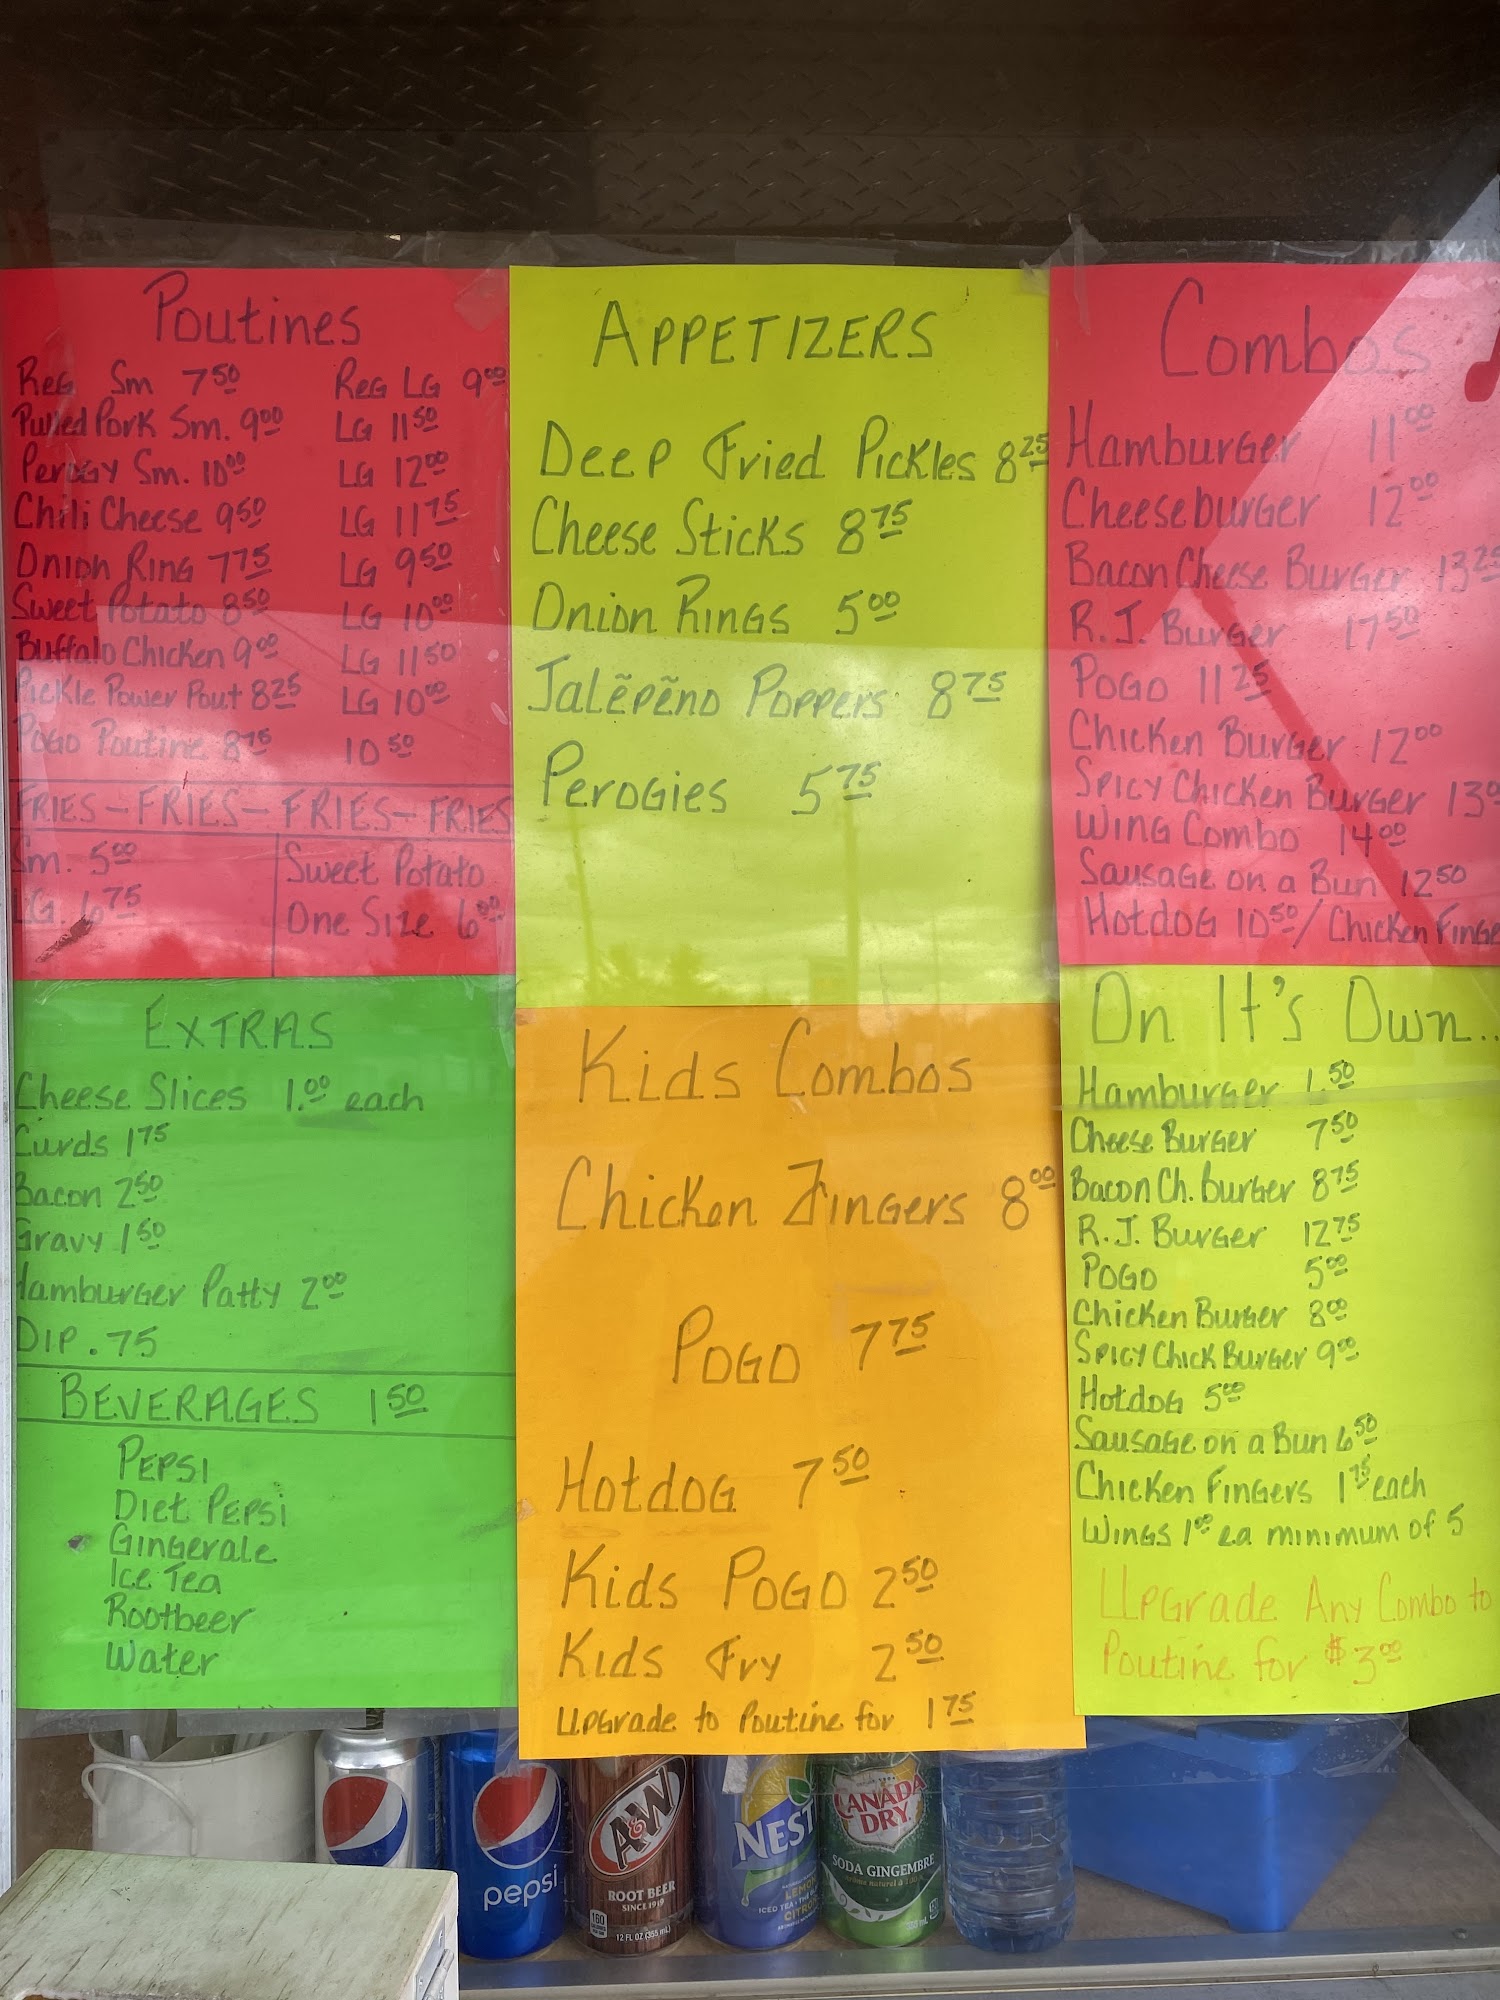 Poutines
Reg Sm 7.50 Reg LG 9.00
Pulled Pork Sm. 9.00 LG 11.50
Perogy Sm. 10.00 LG 12.00
Chili Cheese 9.50 LG 11.75
Onion Ring 7.75 LG 9.50
Sweet Potato 8.50 LG 10.00
Buffalo Chicken 9.00 LG 11.50
Pickle Power Pout 8.25 LG 10.00
Pogo Poutine 8.75 10.50
FRIES-FRIES-FRIES-FRIES
Sm. 5.00
LG. 6.75
Sweet Potato
One Size 6.00
APPETIZERS
Deep Fried Pickles 8.25
Cheese Sticks 8.75
Onion Rings 5.00
Jalẽpẽno Poppers 8.75
Perogies 5.75
Combos
Hamburger 11.00
Cheeseburger 12.00
Bacon Cheese Burger 13.25
R.J. Burger 17.50
Pogo 11.25
Chicken Burger 12.00
Spicy Chicken Burger 13.0
Wing Combo 14.00
Sausage on a Bun 12.50
Hotdog 10.50/Chicken Finge
EXTRAS
Cheese Slices 1.00 each
Curds 1.75
Bacon 2.50
Gravy 1.50
Hamburger Patty 2.00
DIP .75
BEVERAGES 1.50
Pepsi
Diet Pepsi
Gingerale
Ice Tea
Rootbeer
Water
Kids Combos
Chicken Fingers 8.00
Pogo 7.75
Hotdog 7.50
Kids Pogo 2.50
Kids Fry 2.50
Upgrade to Poutine for 1.75
On It's Own..
Hamburger 6.50
Cheese Burger 7.50
Bacon Ch. Burger 8.75
R.J. Burger 12.75
Pogo 5.00
Chicken Burger 8.00
Spicy Chick Burger 9.00
Hotdog 5.00
Sausage on a Bun 6.50
Chicken Fingers 1.75 each
Wings 1.00 ea minimum of 5
Upgrade Any Combo to
Poutine for $3.00
pepsi
A&W
ROOT BEER
SINCE 1919
12 FL OZ (355 mL)
NEST
CANADA
DRY
SODA GINGEMBRE